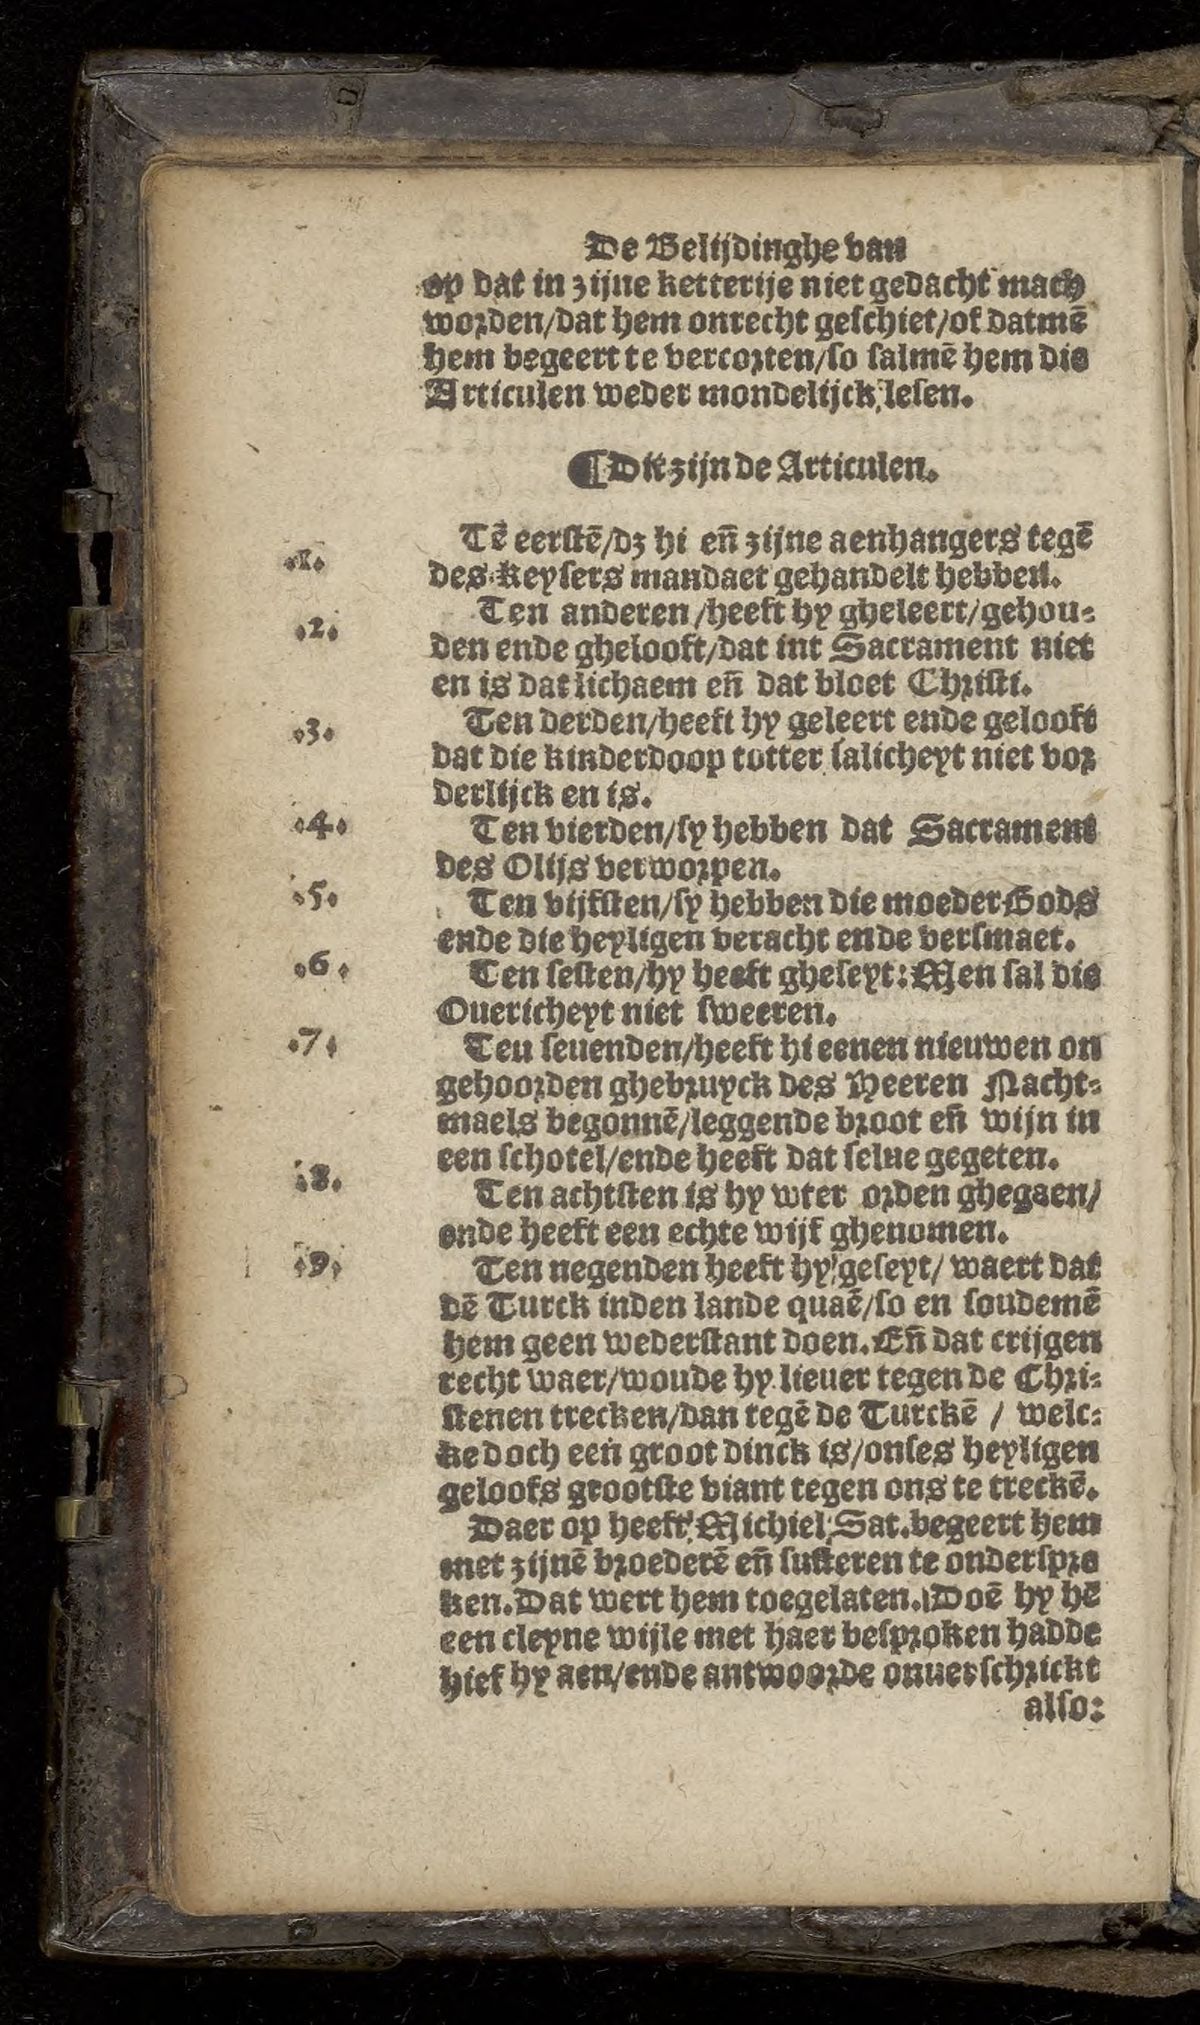 De Belijdinghe van
op dat in zijne ketterije niet gedacht mach
worden/dat hem onrecht geschiet/of datmē
hem begeert te vercorten/so salmē hem die
Articulen weder mondelijck lesen.
¶ Dit zijn de Articulen.
.1. Tē eerstē/dz hi eñ zijne aenhangers tegē
des Keysers mandaet gehandelt hebben.
.2. Ten anderen/heeft hy gheleert/gehou-
den ende ghelooft/dat int Sacrament niet
en is dat lichaem eñ dat bloet Christi.
.3. Ten derden/heeft hy geleert ende gelooft
dat die kinderdoop totter salicheyt niet vor
derlijck en is.
.4. Ten vierden/sy hebben dat Sacrament
des Olijs verworpen.
.5. Ten vijfsten/sy hebben die moeder Gods
ende die heyligen veracht ende versmaet.
.6. Ten sesten/hy heeft gheseyt: Men sal die
Ouericheyt niet sweeren.
.7. Teu seuenden/heeft hi eenen nieuwen on
gehoorden ghebruyck des Heeren Nacht-
maels begonnē/leggende broot eñ wijn in
een schotel/ende heeft dat selue gegeten.
.8. Ten achtsten is hy wter orden ghegaen/
ende heeft een echte wijf ghenomen.
.9. Ten negenden heeft hy geseyt/ waert dat
dē Turck inden lande quaē/so en soudemē
hem geen wederstant doen. Eñ dat crijgen
recht waer/woude hy lieuer tegen de Chri-
stenen trecken/dan tegē de Turckē / welc-
ke doch een groot dinck is/onses heyligen
geloofs grootste viant tegen ons te treckē.
Daer op heeft Michiel Sat. begeert hem
met zijnē broederē eñ susteren te onderspre
ken. Dat wert hem toegelaten. Doē hy hē
een cleyne wijle met haer besproken hadde
hief hy aen/ende antwoorde onuerschrickt
also: